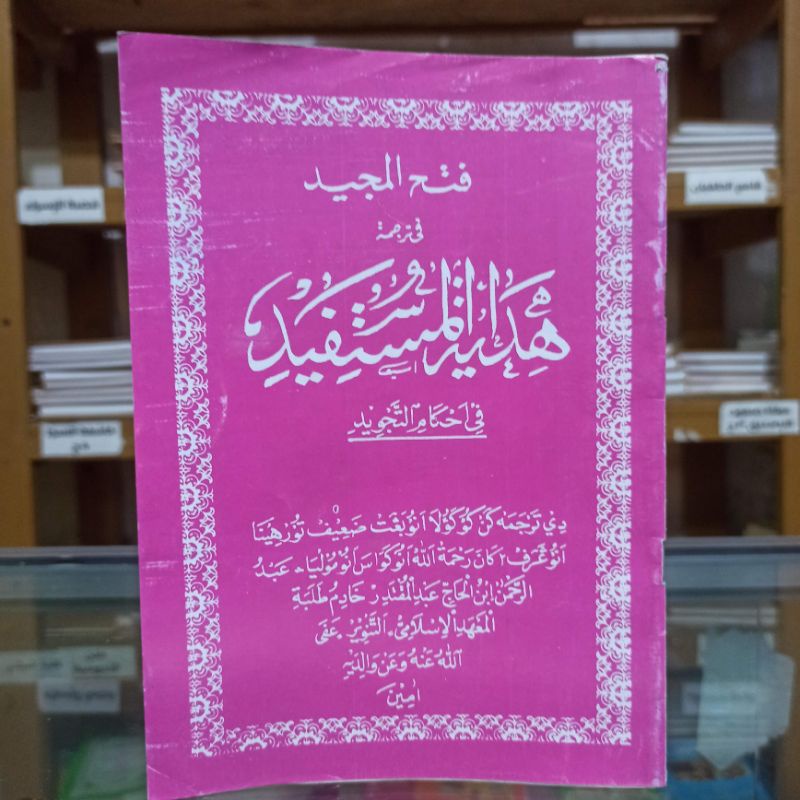 فتح المجيد
فى ترجمة
هِدَايَةُ الْمُسْتَفِيْدِ
فِى اَحْكَامِ التَّجْوِيْدِ
دِيْ تَرْجَمَهْ كَنْ كَوْكَوُلَا اَنُوْ بَڠَتْ ضَعِيْفْ تُوْرْ هِيْنَا
اَنُوْ غَرَفْ٢ كَانْ رَحْمَةْ اَللهْ اَنُوْ كَوَاسَ اَنُوْ مُوْلْيَا، عَبْدُ
الرَّحْمٰن ابْنُ الْحَاجّ عَبْدِ الْمُقْتَدِرْ خَادِمُ طَلَبَةِ
الْمَعْهَدِ الْإِسْلَامِىْ، التَّنْوِيْرْ، عَفَى
اللّٰهُ عَنْهُ وَعَنْ وَالِدَيْهِ
اٰمِيْنَ